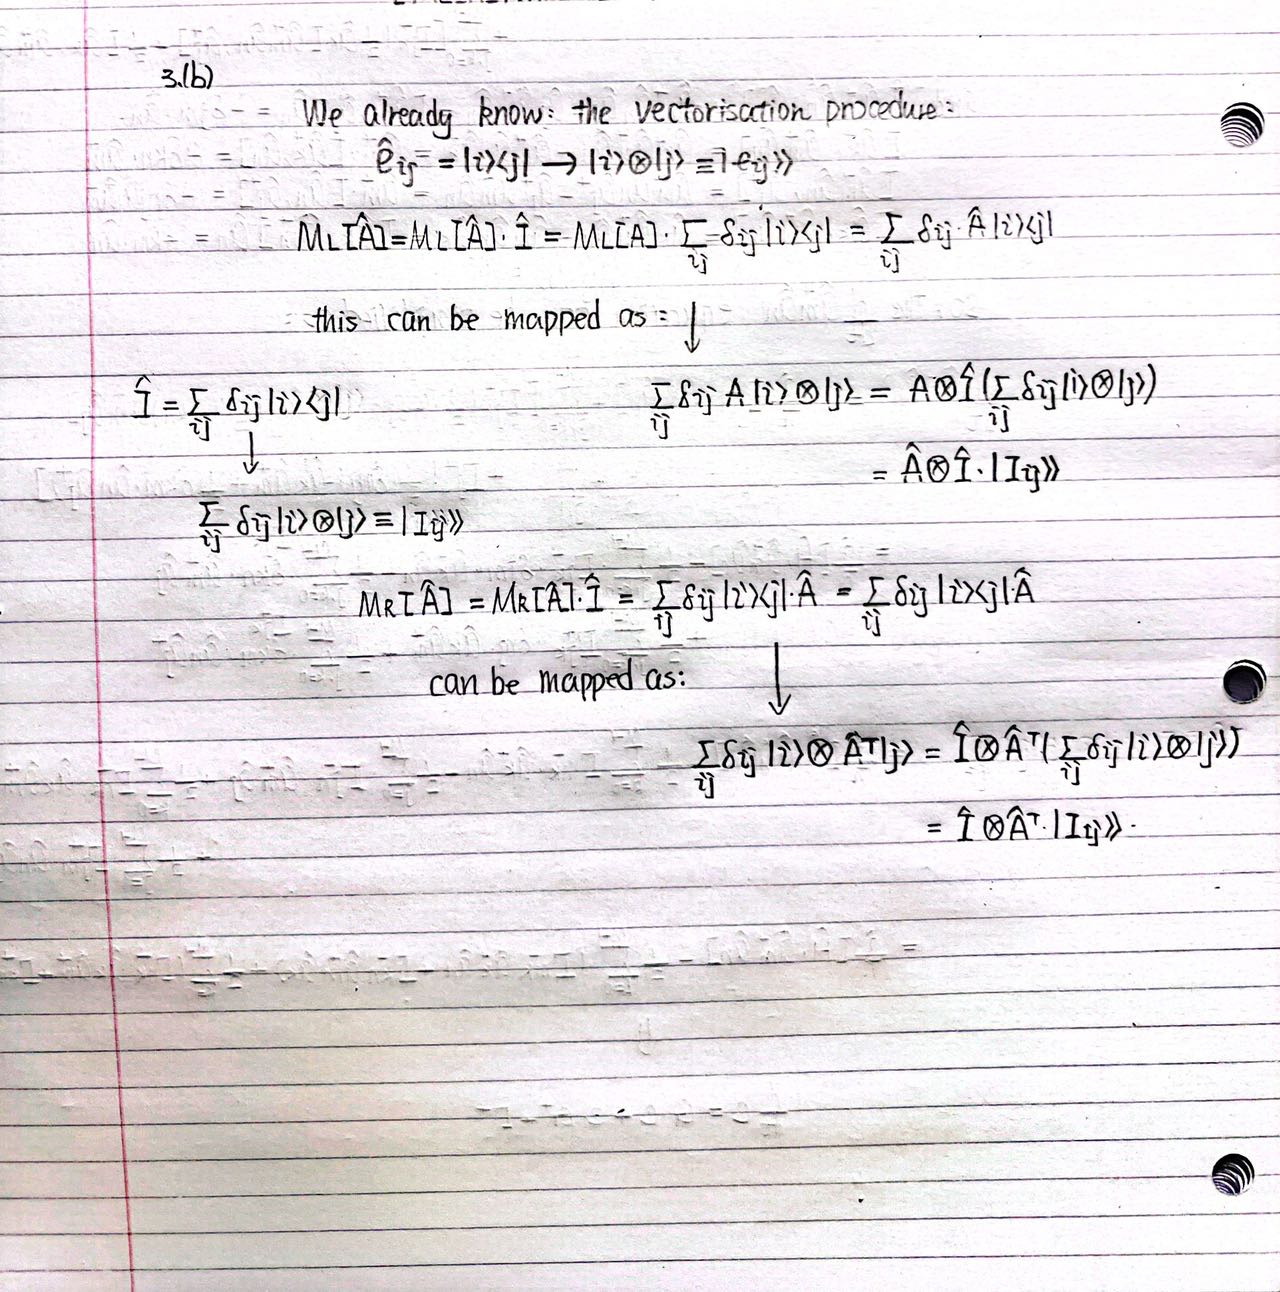 3.(b)
We already know: the vectorisation procedure:
ê_ij = |i><j| → |i>⊗|j> ≡ |e_ij>>
= M_L[Â] = M_L[Â]·Î = M_L[A]·∑_ij δ_ij |i><j| = ∑_ij δ_ij·Â|i><j|
this can be mapped as: ↓
Î = ∑_ij δ_ij |i><j|
∑_ij δ_ij A|i>⊗|j> = A⊗Î(∑_ij δ_ij |i>⊗|j>)
↓
= Â⊗Î·|I_ij>>
∑_ij δ_ij |i>⊗|j> ≡ |I_ij>>
M_R[Â] = M_R[Â]·Î = ∑_ij δ_ij |i><j|·Â = ∑_ij δ_ij |i><j|·Â
can be mapped as: ↓
∑_ij δ_ij |i>⊗Â^T|j> = Î⊗Â^T(∑_ij δ_ij |i>⊗|j>)
= Î⊗Â^T·|I_ij>>.